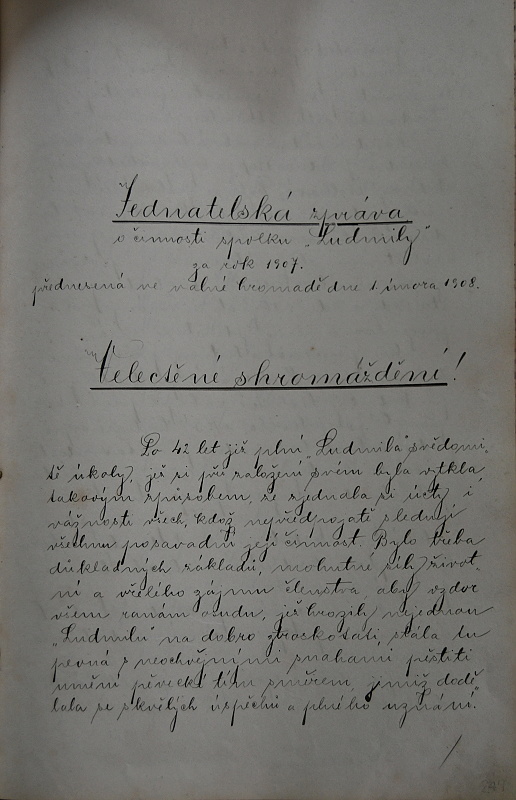 Jednatelská zpráva
o činnosti spolku „Ludmily"
za rok 1907.
přednesená ve valné hromadě dne 1. února 1908.
Velectěné shromáždění!
Po 42 let již plní „Ludmila" svědomi-
tě úkoly, jež si při založení svém byla vytkla
takovým způsobem, že zjednala si úcty i
vážnosti všech, kdož nepředpojatě sledují
všechnu posavadní její činnost. Bylo třeba
důkladných základů, mohutné síly život-
ní a vřelého zájmu členstva, aby vzdor
všem ranám osudu, jež hrozily nejednou
„Ludmilu" na dobro ztroskotati, stála tu
pevná s neochvějnými snahami pěstiti
umění pěvecké tím směrem, jímž dodě-
lala se skvělých úspěchů a plného uznání.